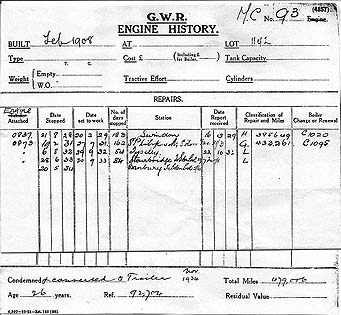 G.W.R.
ENGINE HISTORY.
M/C No. 93 (4857) Engine.
BUILT Feb 1908 AT LOT 1142
Type Cost £ (Including £ for Boiler.) Tank Capacity
T. C.
Weight { Empty Tractive Effort Cylinders
W.O.
REPAIRS.
Engine Attached Date Stopped Date set to work No. of days stopped Station Date Report received Classification of Repairs and Miles Boiler Change or Renewal
0837 21 8 28 20 2 29 183 Swindon 16 3 29 H 395649 C1020
0873 162 St Philip's M. G. 432261 C1095
8 32 29 9 32 54 Tyseley 22 10 32 L
28 6 33 20 9 33 84 Stourbridge L
20 5 34 Banbury
Condemned & converted to Trailer Nov. 1934 Total Miles 479,006
Age 26 years. Ref. 92,704 Residual Value